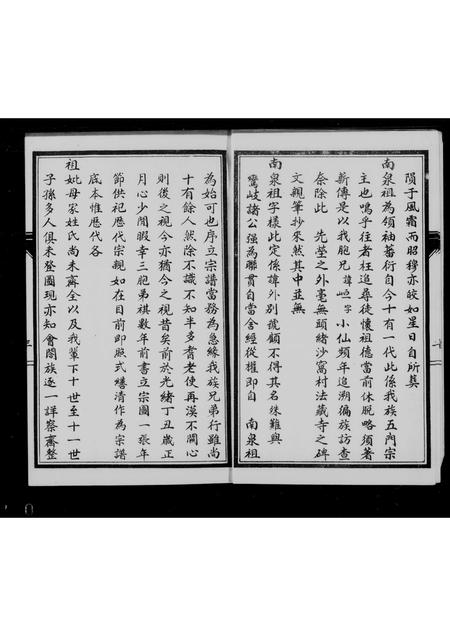 陨于風霜而昭穆亦皎如星日自所奠
南泉祖為領袖蕃衍自今十有一代此係我族五門宗
主也嗚乎往者枉追尋徒懷祖德當前休脱略須著
薪傳是以我胞兄諱字小仙頻年追溯偏族訪查
奈除此 先塋之外毫無頭緒沙窩村法藏寺之碑
文親筆抄來然其中並無
南泉祖字樣此定係諱外別號顧不得其名殊難與
鸞岐諸公强為聯貫自當舍經從權即自 南泉祖
為始可也序立宗譜當務為急緣我族兄弟行雖尚
十有餘人然除不識不知半多耆老使再漠不關心
則後之視今亦猶今之視昔矣前於光緒丁丑歲正
月心少閒暇幸三胞弟祺數年前書立宗圖一張年
節供祀歷代宗親如在目前即照式繕清作為宗譜
底本惟歷代各
祖妣母家姓氏尚未齊全以及我輩下十世至十一世
子孫多人俱未登圖現亦知會闔族逐一詳察齋整